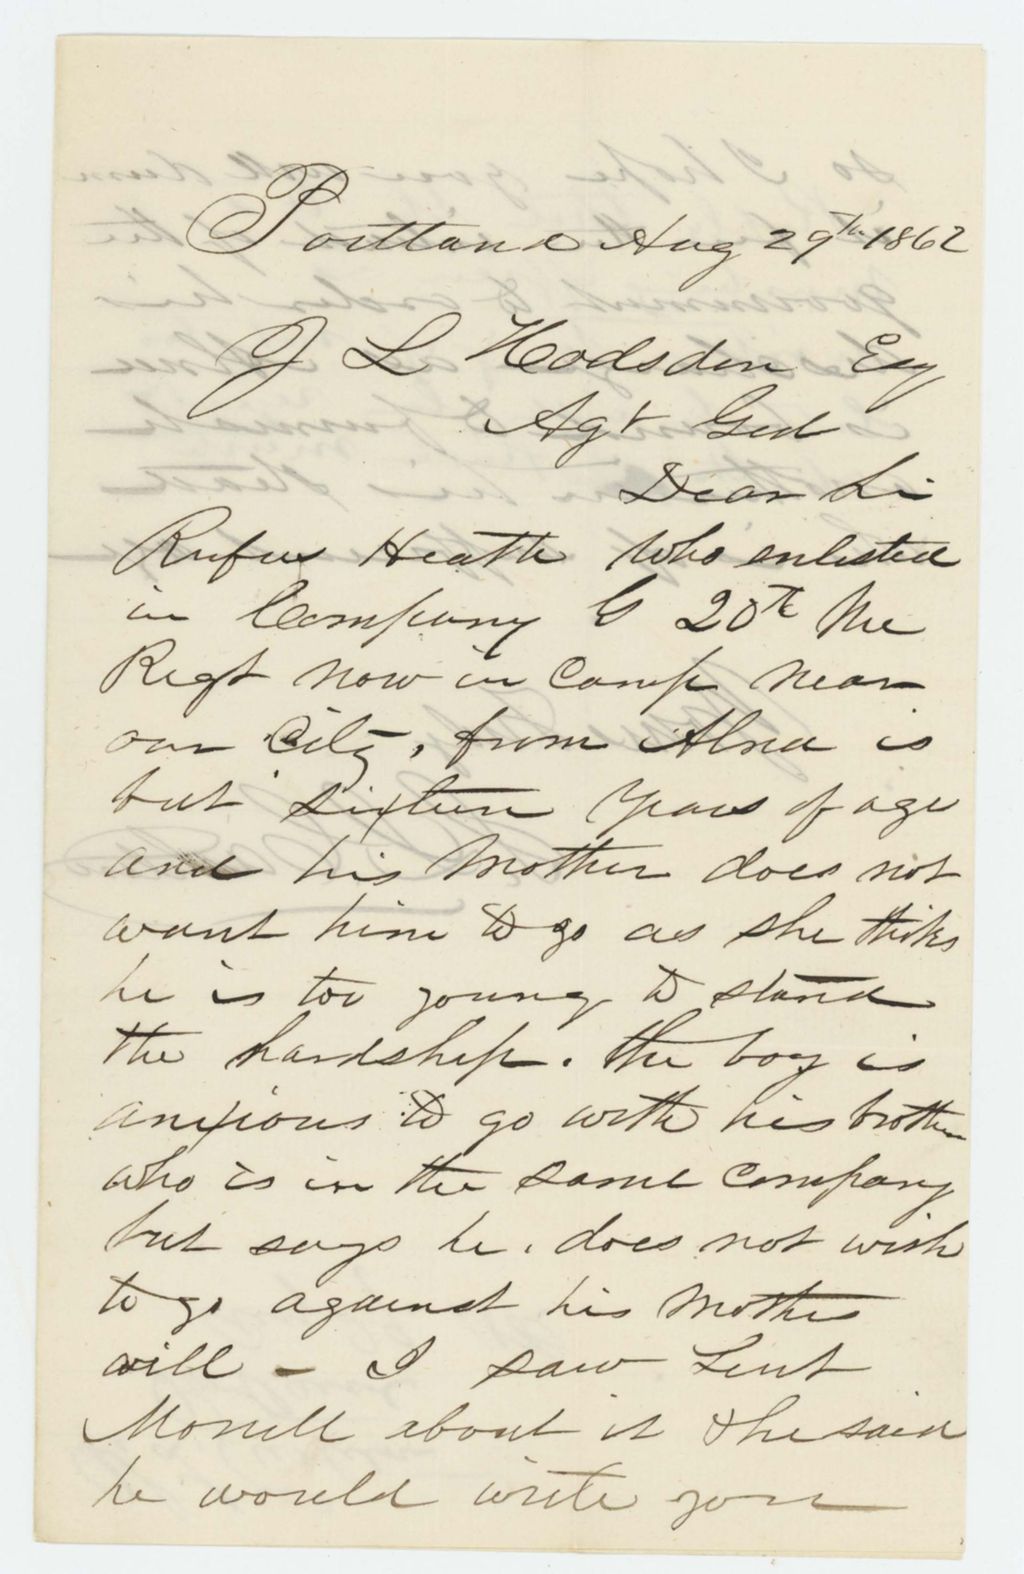 Portland Aug 29th 1862
J L Hodsdon Esq
Agt Genl
Dear Sir
Rufus Heath who enlisted
in Company G 20th Me
Regt now in Camp near
our City, from Alna is
but sixteen years of age
and his Mother does not
want him to go as she thiks
he is too young to stand
the hardship. the boy is
anxious to go with his brother
who is in the same Company
but says he does not wish
to go against his Mothers
will - I saw Lieut
Morrell about it & he said
he would write you